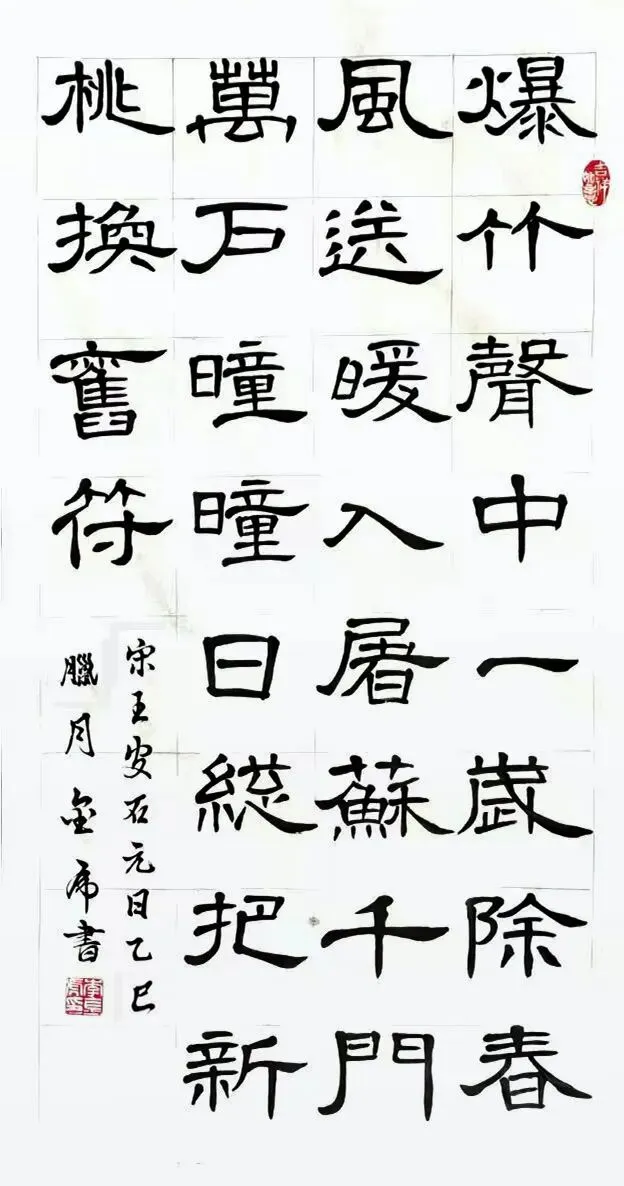 爆竹聲中一歲除春
風送暖入屠蘇千門
萬戶曈曈日總把新
桃換舊符
宋王安石元日乙巳
臘月金虎書